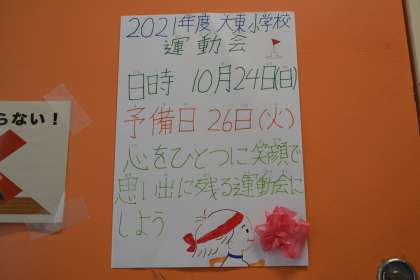 2021年度 大東小学校
運動会
日時 10月24日(日)
予備日 26日(火)
心をひとつに笑顔で
思い出に残る運動会に
しよう
らない！